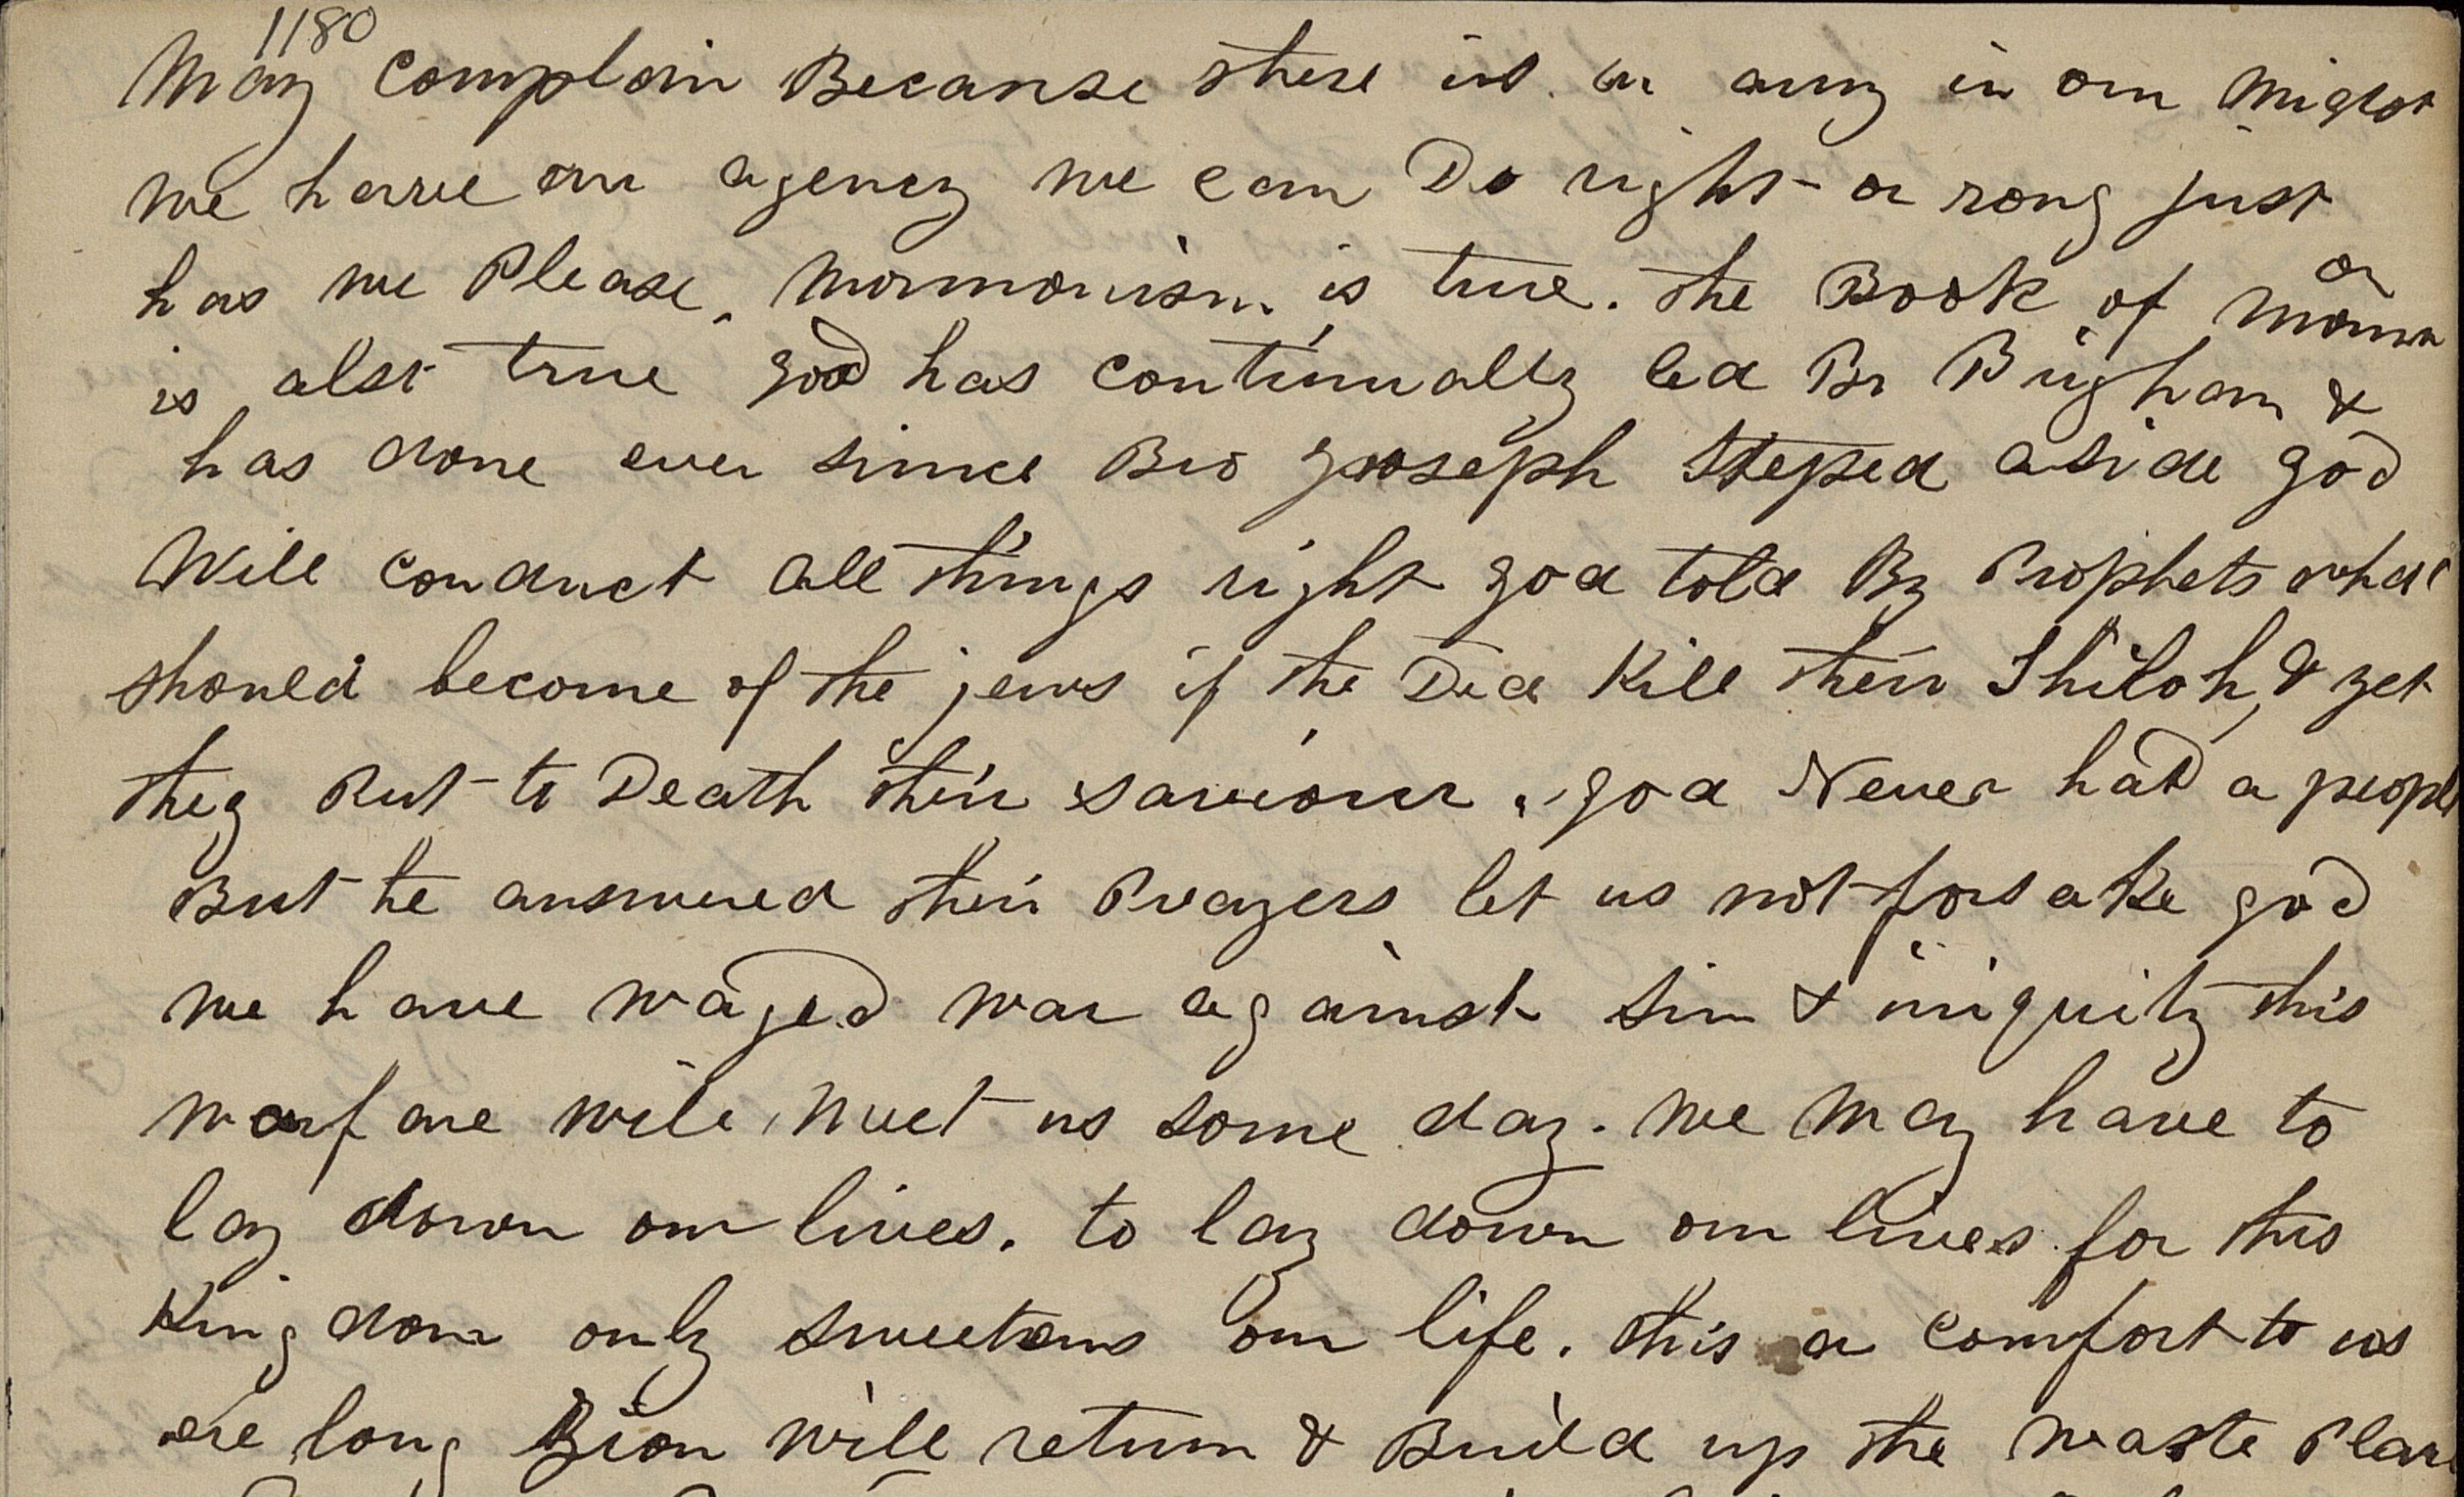 1180
May complain Because there is an army in our Midst
we have our agency we can Do right or rong just
has we Please. Mormonism is true. the Book of Mormon
is also true god has continually led Br Brigham &
has done ever since Bro Jooseph Steped aside god
Will conduct all things right god told By Prophets what
should become of the jews if the Did Kill their Shiloh, & yet
they Put to Death their saviour. god Never had a people
But he answered their Prayers let us not forsake god
we have waged war against sin & iniquity this
warfare will Meet us some day. we May have to
lay down our lives. to lay down our lives for this
Kingdom only sweetens our life. this a comfort to us
ere long Zion will return & Build up the waste